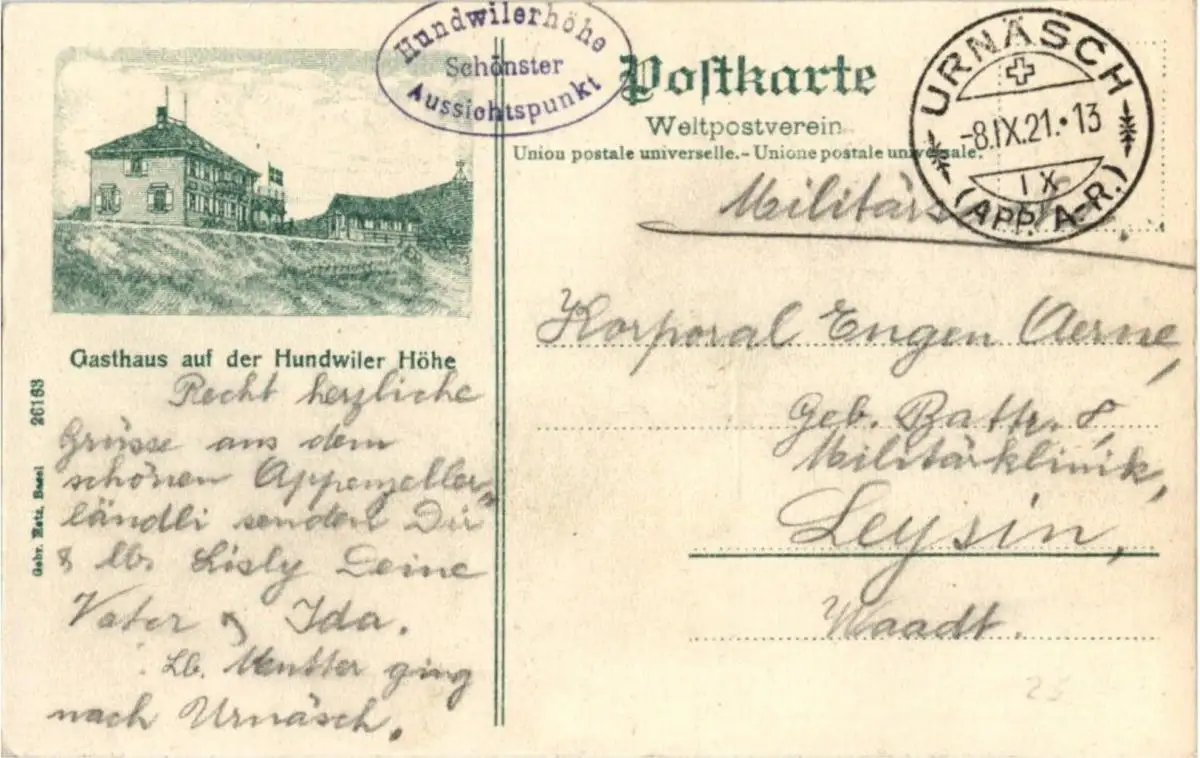 Hundwilerhöhe
Schönster
Aussichtspunkt
Postkarte
Weltpostverein
Union postale universelle. - Unione postale universale.
URNÄSCH
-8.IX.21.•13
IX
(APP. A-R.)
Gasthaus auf der Hundwiler Höhe
Recht herzliche
Grüsse aus dem
schönen Appenzeller-
ländli senden Dir
& lb. Lisly Deine
Vater & Ida.
Lb. Mutter ging
nach Urnäsch.
Korporal Eugen Aerne,
Geb. Battr. 8,
Militärklinik,
Leysin,
Waadt.
26163
Gebr. Metz, Basel
25